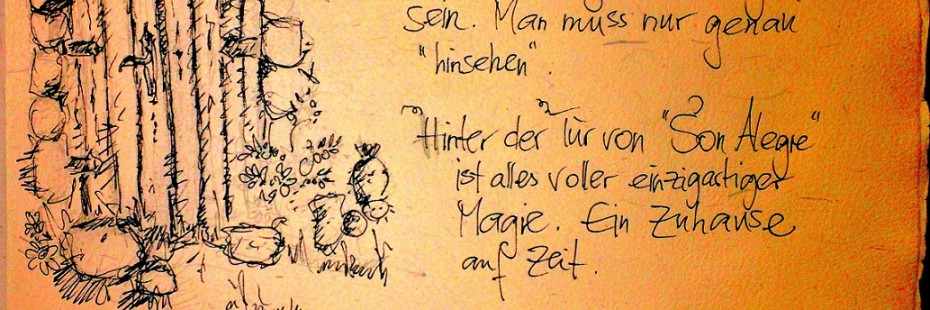 sein. Man muss nur genau
"hinsehen".
"Hinter der Tür von "Son Alegre"
ist alles voller einzigartiger
Magie. Ein Zuhause
auf Zeit.